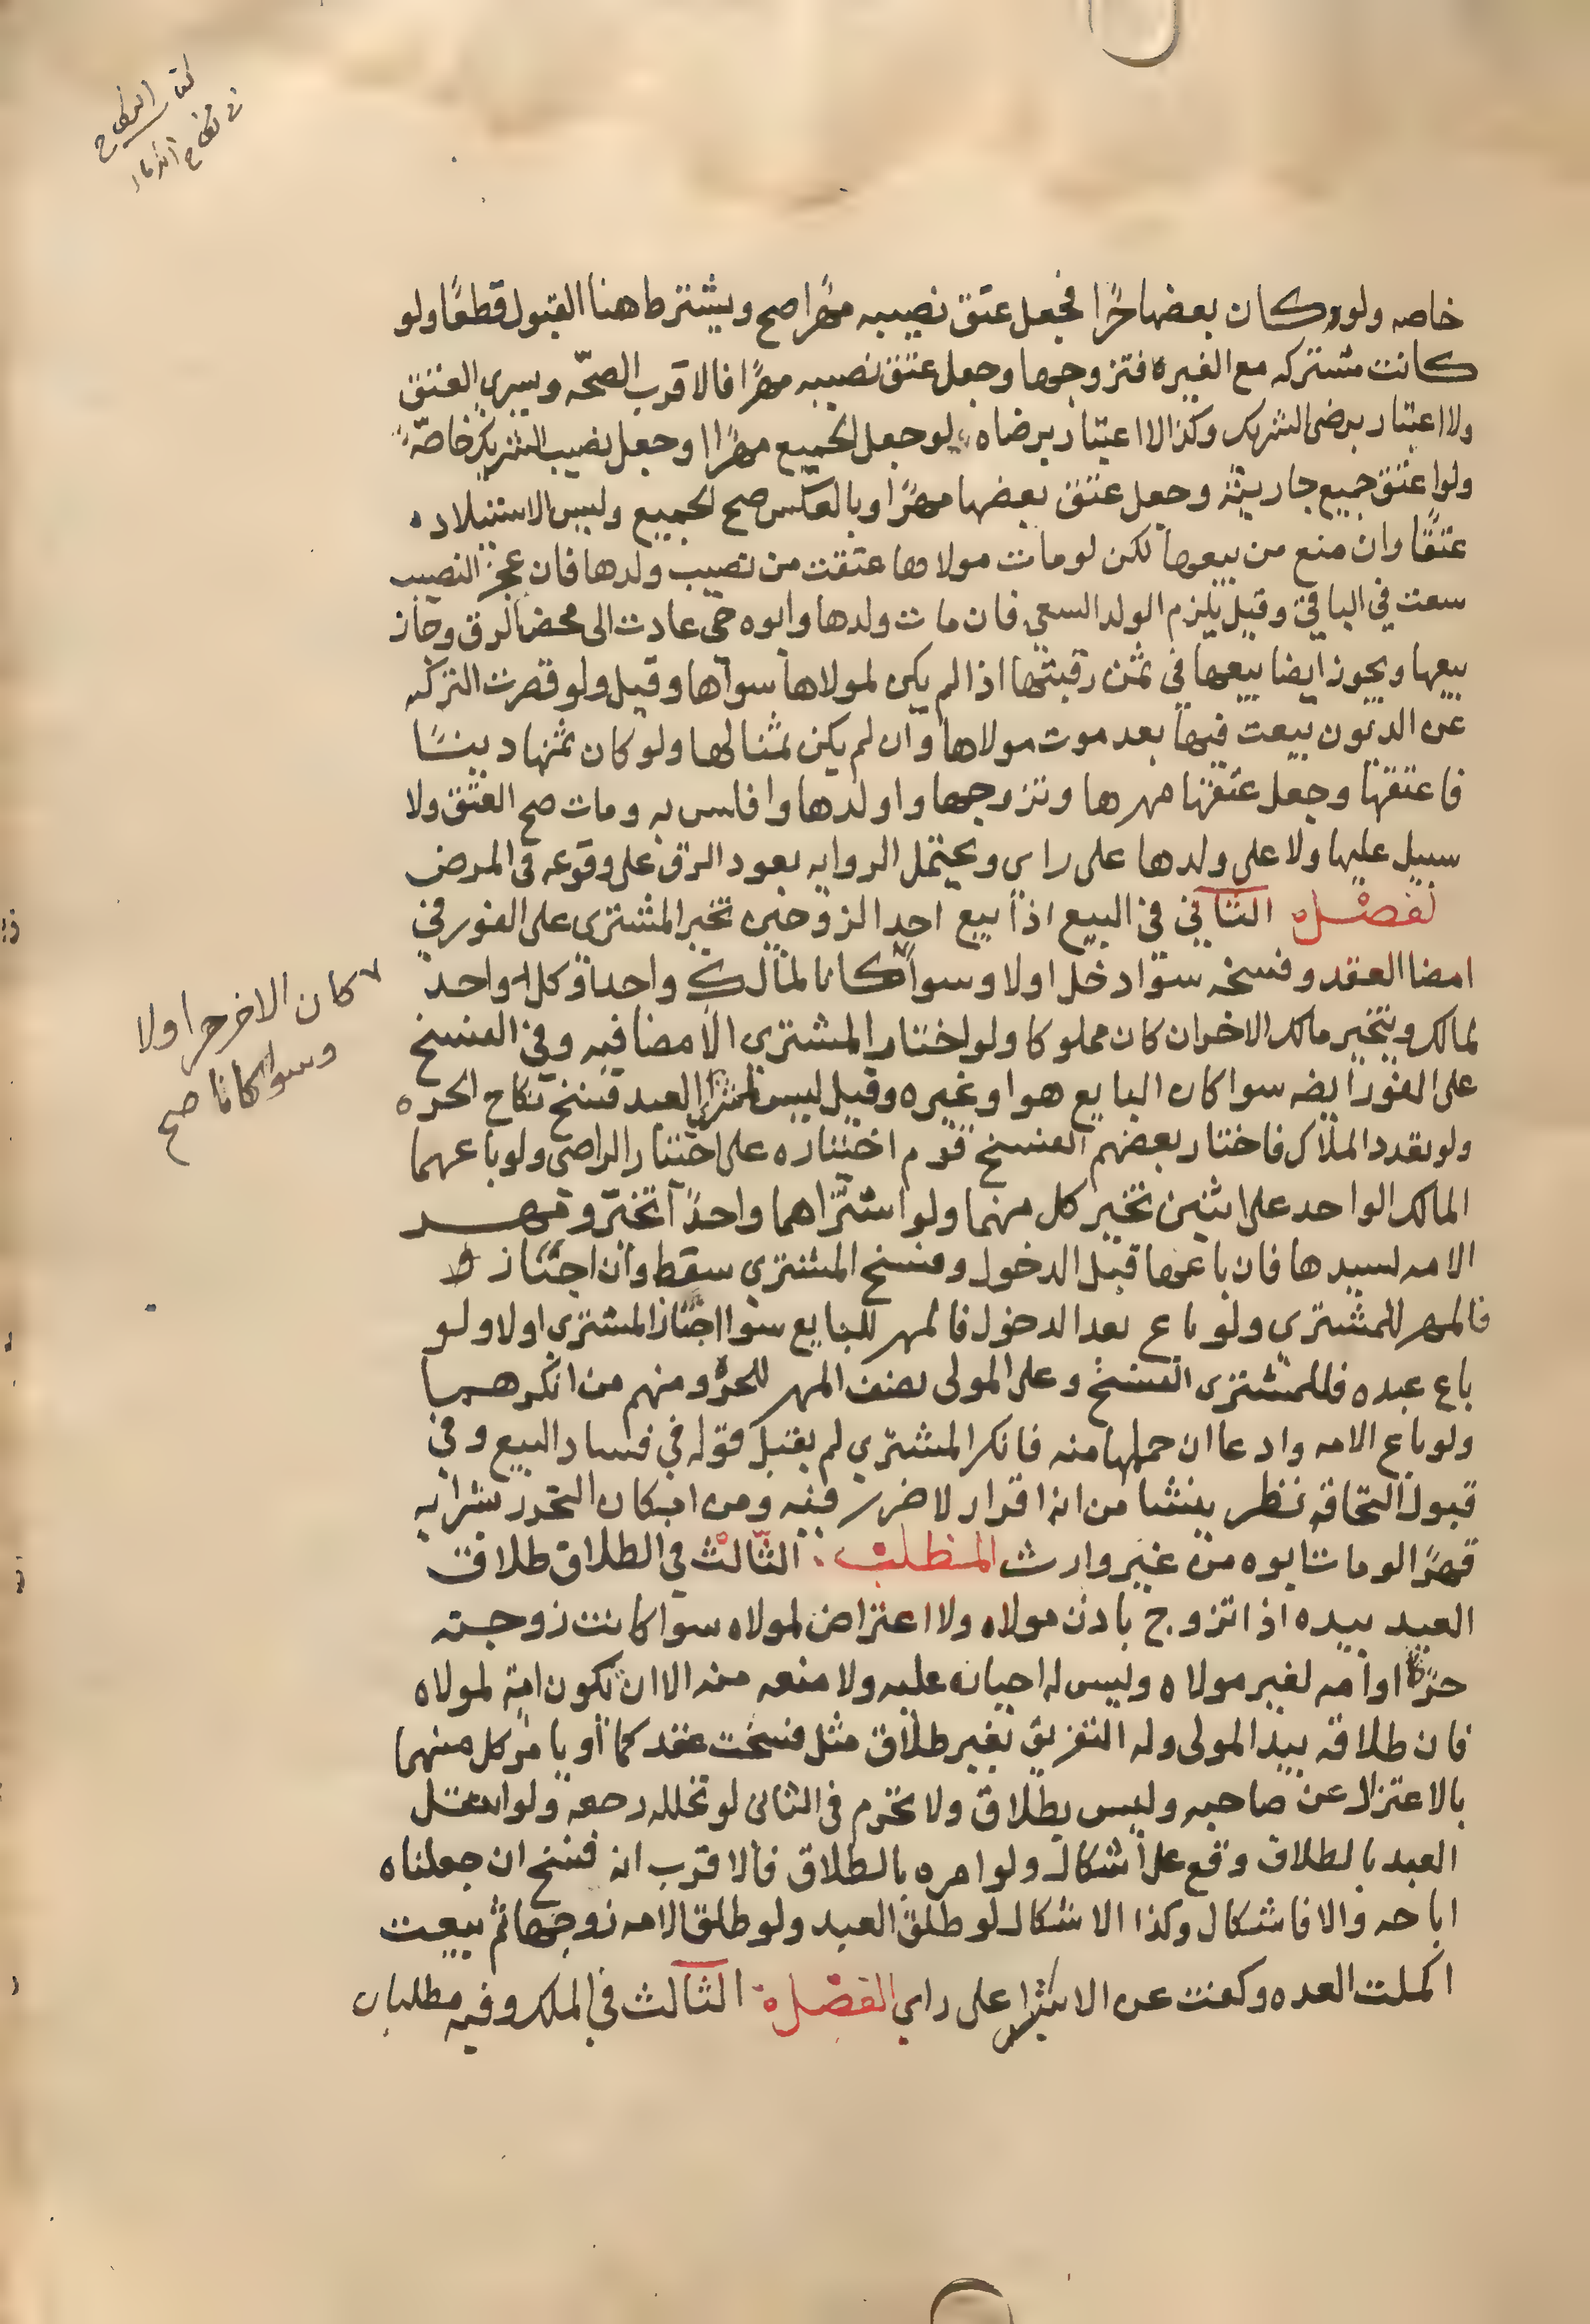 كتاب النكاح
في نكاح الاماء
خاصه ولو كان بعضها حُرًا فجعل عتق نصيبه مهرًا صح ويشترط هنا القبول قطعًا ولو
كانت مشتركه مع الغير فتزوجها وجعل عتق نصيبه مهرًا فالاقرب الصحّه ويسرى العتق
ولا اعتبار برضى الشريك وكذا لا اعتبار برضاه لو جعل الجميع مهرًا او جعل نصيب الشريك خاصّه
ولو اعتق جميع جاريته وجعل عتق بعضها مهرًا او بالعكس صح الجميع وليس الاستيلاد
عتقًا وان منع من بيعها لكن لو مات مولاها عتقت من نصيب ولدها فان عجز النصيب
سعت في الباقي وقيل يلزم الولد السعي فان مات ولدها وابوه حي عادت الى محض الرق وجاز
بيعها ويجوز ايضا بيعها في ثمن رقبتها اذا لم يكن لمولاها سواها وقيل ولو قصرت التركه
عن الديون بيعت فيها بعد موت مولاها وان لم يكن ثمنا لها ولو كان ثمنها دينًا
فاعتقها وجعل عتقها مهرها وتزوجها واولدها وافلس به ومات صح العتق ولا
سبيل عليها ولا على ولدها على راى ويحتمل الروايه بعود الرق على وقوعه في المرض
لفصل الثاني في البيع اذا بيع احد الزوجين تخير المشترى على الفور في
امضا العقد وفسخه سوا دخل اولا وسوا كانا لمالك واحد او كل واحد
لمالك ويتخير مالك الاخر ان كان مملوكا ولو اختار المشتري الامضا فيه وفي الفسخ
كان الاخر حرا اولا
وسوا كانا صح
على الفور ايضه سوا كان البايع هو او غيره وقيل ليس لمشترى العبد فسخ نكاح الحره
ولو تعدد الملاك فاختار بعضهم الفسخ قدم اختياره على اختيار الراضى ولو باعهما
المالك الواحد على اثنين تخير كل منهما ولو اشتراهما واحدًا تخيّر ومهـر
الامه لسيدها فان باعها قبل الدخول وفسخ المشتري سقط وان اجاز
فالمهر للمشتري ولو باع بعد الدخول فالمهر للبايع سوا اجاز المشتري اولا ولو
باع عبده فللمشترى الفسخ وعلى المولى نصف المهر للحرّه ومنهم من انكرهما
ولو باع الامه وادعا ان حملها منه فانكر المشتري لم يقبل قوله في فساد البيع وفي
قبول التحاقه نظر ينشا من انه اقرار لا ضرر فيه ومن امكان التحرر بشرايه
قهرًا لو مات ابوه من غير وارث المطلب الثالث في الطلاق طلاق
العبد بيده اذا تزوج باذن مولاه ولا اعتراض لمولاه سوا كانت زوجته
حرّه او امه لغير مولاه وليس له اجباره عليه ولا منعه منه الا ان تكون امة لمولاه
فان طلاقه بيد المولى وله التفريق بغير طلاق مثل فسخت عقدكما او يامر كل منهما
بالاعتزال عن صاحبه وليس بطلاق ولا تحرم في الثانى لو تخلله رجعه ولو استقل
العبد بالطلاق وقع على اشكال ولو امره بالطلاق فالاقرب انه فسخ ان جعلناه
اباحه والا فاشكال وكذا الاشكال لو طلق العبد ولو طلق الامه زوجها ثم بيعت
اكملت العده وكفت عن الاستبرا على راى الفصل الثالث في الملك وفيه مطلبان